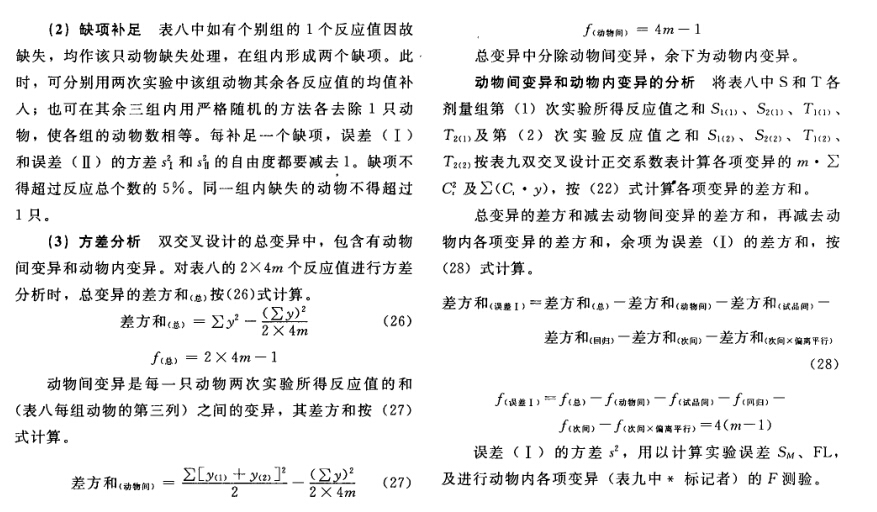 (2) 缺项补足 表八中如有个别组的 1 个反应值因故
缺失，均作该只动物缺失处理，在组内形成两个缺项。此
时，可分别用两次实验中该组动物其余各反应值的均值补
入；也可在其余三组内用严格随机的方法各去除 1 只动
物，使各组的动物数相等。每补足一个缺项，误差（Ⅰ）
和误差（Ⅱ）的方差 s²Ⅰ 和 s²Ⅱ 的自由度都要减去 1。缺项不
得超过反应总个数的 5%。同一组内缺失的动物不得超过
1 只。
(3) 方差分析 双交叉设计的总变异中，包含有动物
间变异和动物内变异。对表八的 2×4m 个反应值进行方差
分析时，总变异的差方和(总) 按(26)式计算。
差方和(总) = ∑y² − (∑y)²/(2×4m) (26)
f(总) = 2×4m−1
动物间变异是每一只动物两次实验所得反应值的和
(表八每组动物的第三列) 之间的变异，其差方和按 (27)
式计算。
差方和(动物间) = ∑[y(1)+y(2)]²/2 − (∑y)²/(2×4m) (27)
f(动物间) = 4m−1
总变异中分除动物间变异，余下为动物内变异。
动物间变异和动物内变异的分析 将表八中 S 和 T 各
剂量组第（1）次实验所得反应值之和 S1(1)、S2(1)、T1(1)、
T2(1)及第（2）次实验反应值之和 S1(2)、S2(2)、T1(2)、
T2(2)按表九双交叉设计正交系数表计算各项变异的 m·∑
Cᵢ² 及∑(Cᵢ·y)，按（22）式计算各项变异的差方和。
总变异的差方和减去动物间变异的差方和，再减去动
物内各项变异的差方和，余项为误差（Ⅰ）的差方和，按
(28) 式计算。
差方和(误差Ⅰ)=差方和(总)−差方和(动物间)−差方和(试品间)−
差方和(回归)−差方和(次间)−差方和(次间×偏离平行)
(28)
f(误差Ⅰ)=f(总)−f(动物间)−f(试品间)−f(回归)−
f(次间)−f(次间×偏离平行)=4(m−1)
误差（Ⅰ）的方差 s²，用以计算实验误差 SM、FL，
及进行动物内各项变异（表九中 * 标记者）的 F 测验。